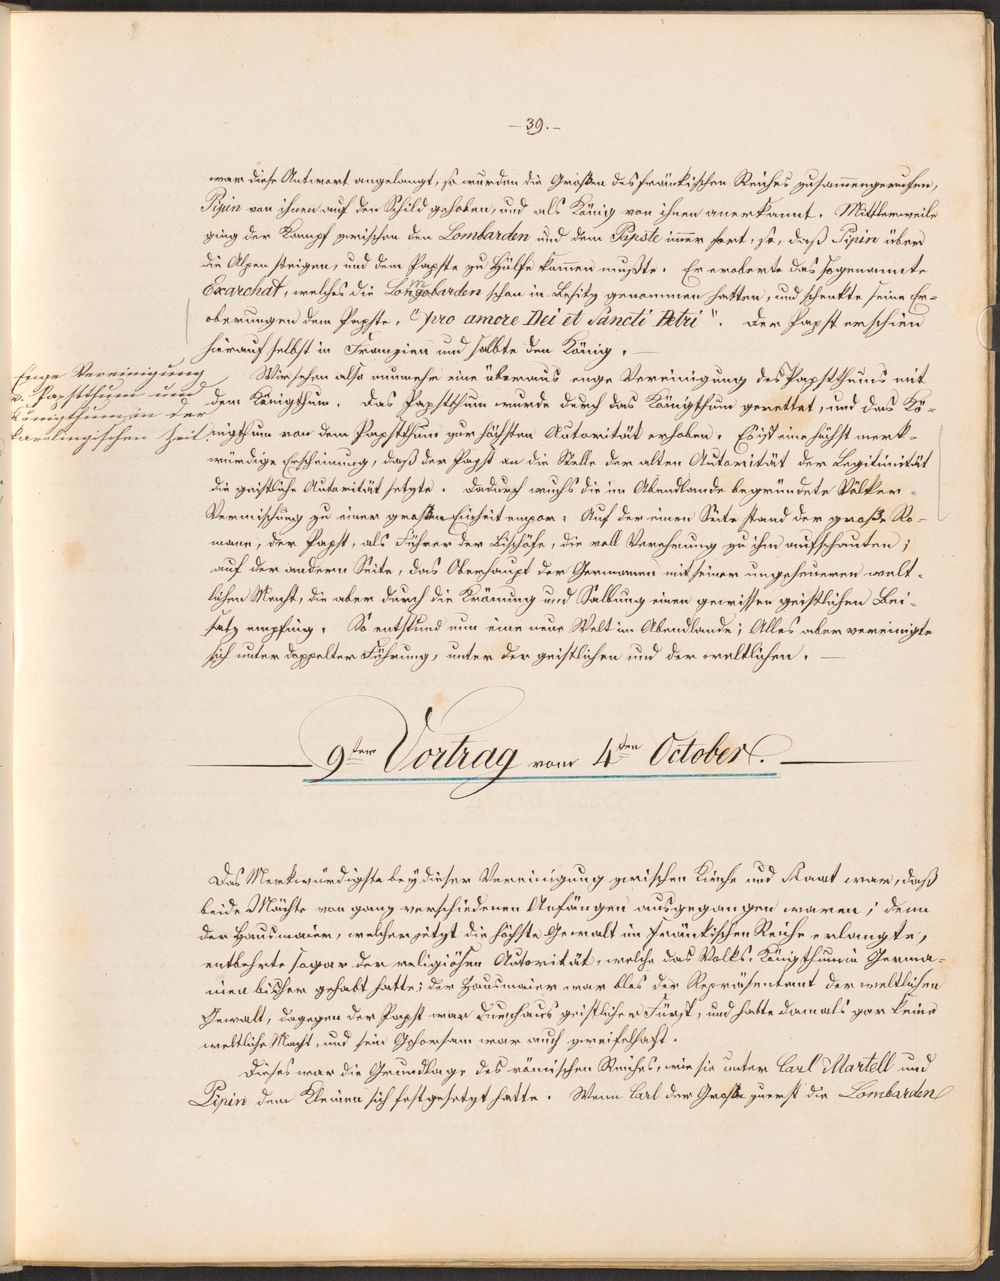 – 39. –
war diese Antwort angelangt, so wurden die Großen des fränkischen Reiches zusammengerufen,
Pipin von ihnen auf den Schild gehoben, und als König von ihnen anerkannt. Mittlerweile
ging der Kampf zwischen den Lombarden und dem Papste immer fort, so, daß Pipin über
die Alpen steigen, und dem Papste zu Hülfe kommen mußte. Er eroberte das sogenannte
Exarchat, welches die Longobarden schon in Besitz genommen hatten, und schenkte seine Er-
oberungen dem Papste, "pro amore Dei et Sancti Petri". Der Papst erschien
hierauf selbst in Franzien und salbte den König. —
Enge Vereinigung
v. Papstthum und
Königthum in der
karolingischen Zeit.
Wir sehen also nunmehr eine überaus enge Vereinigung des Papstthums mit
dem Königthum. Das Papstthum wurde durch das Königthum gerettet, und das Kö-
nigthum von dem Papstthum zur höchsten Autorität erhoben. Es ist eine höchst merk-
würdige Erscheinung, daß der Papst an die Stelle der alten Autorität der Legitimität
die geistliche Autorität setzte. Dadurch wuchs die im Abendlande begründete Völker-
Vermischung zu einer großen Einheit empor. Auf der einen Seite stand der große Ro-
mane, der Papst, als Führer der Bischöfe, die voll Verehrung zu ihm aufschauten;
auf der andern Seite, das Oberhaupt der Germanen mit seiner ungeheueren welt-
lichen Macht, die aber durch die Krönung und Salbung einen gewissen geistlichen Bei-
satz empfing. So entstund nun eine neue Welt im Abendlande; Alles aber vereinigte
sich unter doppelter Führung, unter der geistlichen und der weltlichen. —
9ter Vortrag vom 4ten October.
Das Merkwürdigste bey dieser Vereinigung zwischen Kirche und Staat war, daß
beide Mächte von ganz verschiedenen Anfängen ausgegangen waren; denn
der Hausmaier, welcher jetzt die höchste Gewalt im fränkischen Reiche erlangte,
entbehrte sogar der religiösen Autorität, welche das Volks-Königthum in Germa-
nien bisher gehabt hatte; der Hausmaier war blos der Repräsentant der weltlichen
Gewalt, dagegen der Papst war durchaus geistlicher Fürst, und hatte damals gar keine
weltliche Macht, und sein Gehorsam war auch zweifelhaft.
Dieses war die Grundlage des römischen Reiches, wie sie unter Carl Martell und
Pipin dem Kleinen sich festgesetzt hatte. Wenn Carl der Große zuerst die Lombarden